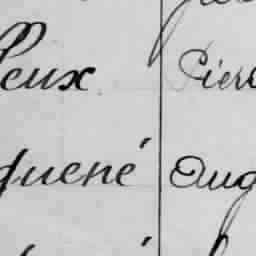 leux Pierr
quené Aug